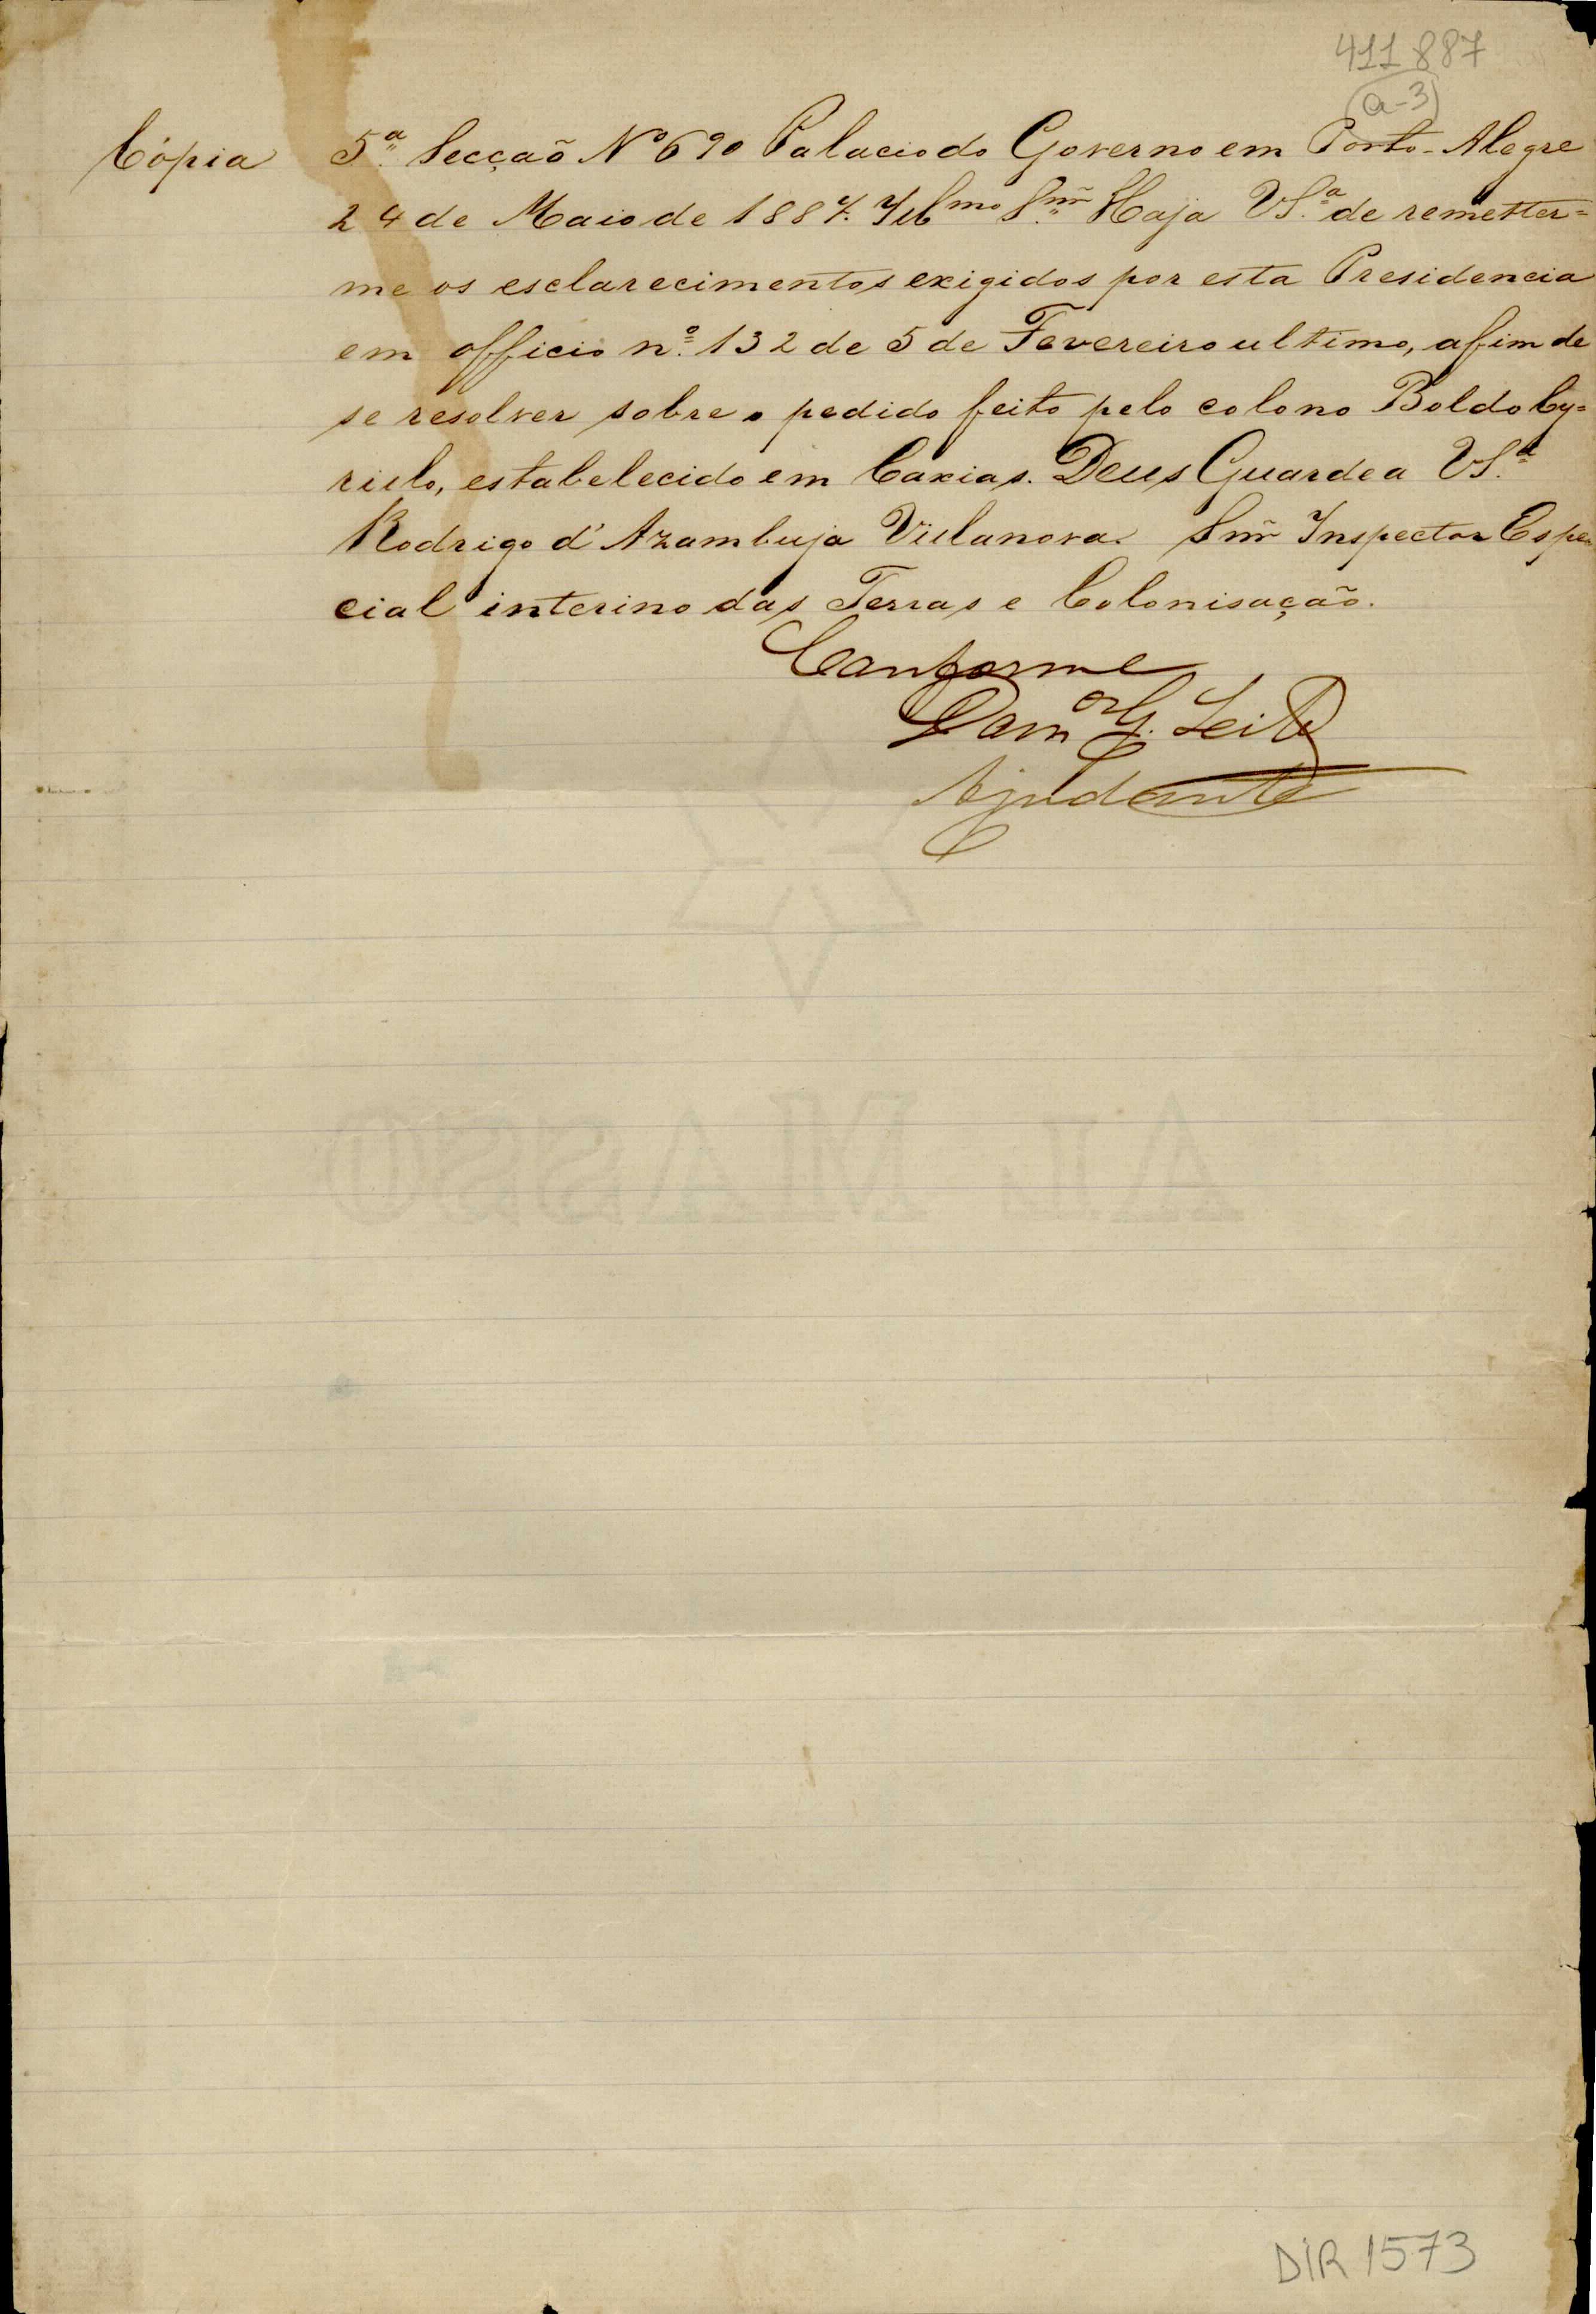 411887
a-3
Cópia 5.ª Secção Nº 690 Palacio do Governo em Porto-Alegre
24 de Maio de 1887. Illmo Snr. Haja VS.ª de remetter=
me os esclarecimentos exigidos por esta Presidencia
em officio n.º 132 de 5 de Fevereiro ultimo, afim de
se resolver sobre o pedido feito pelo colono Boldo Cy=
rillo, estabelecido em Caxias. Deus Guarde a VS.ª
Rodrigo d'Azambuja Villanova. Snr Inspector Espe=
cial interino das Terras e Colonisação.
Conforme
G. Leite
Ajudante
AL MASSO
DIR 1573